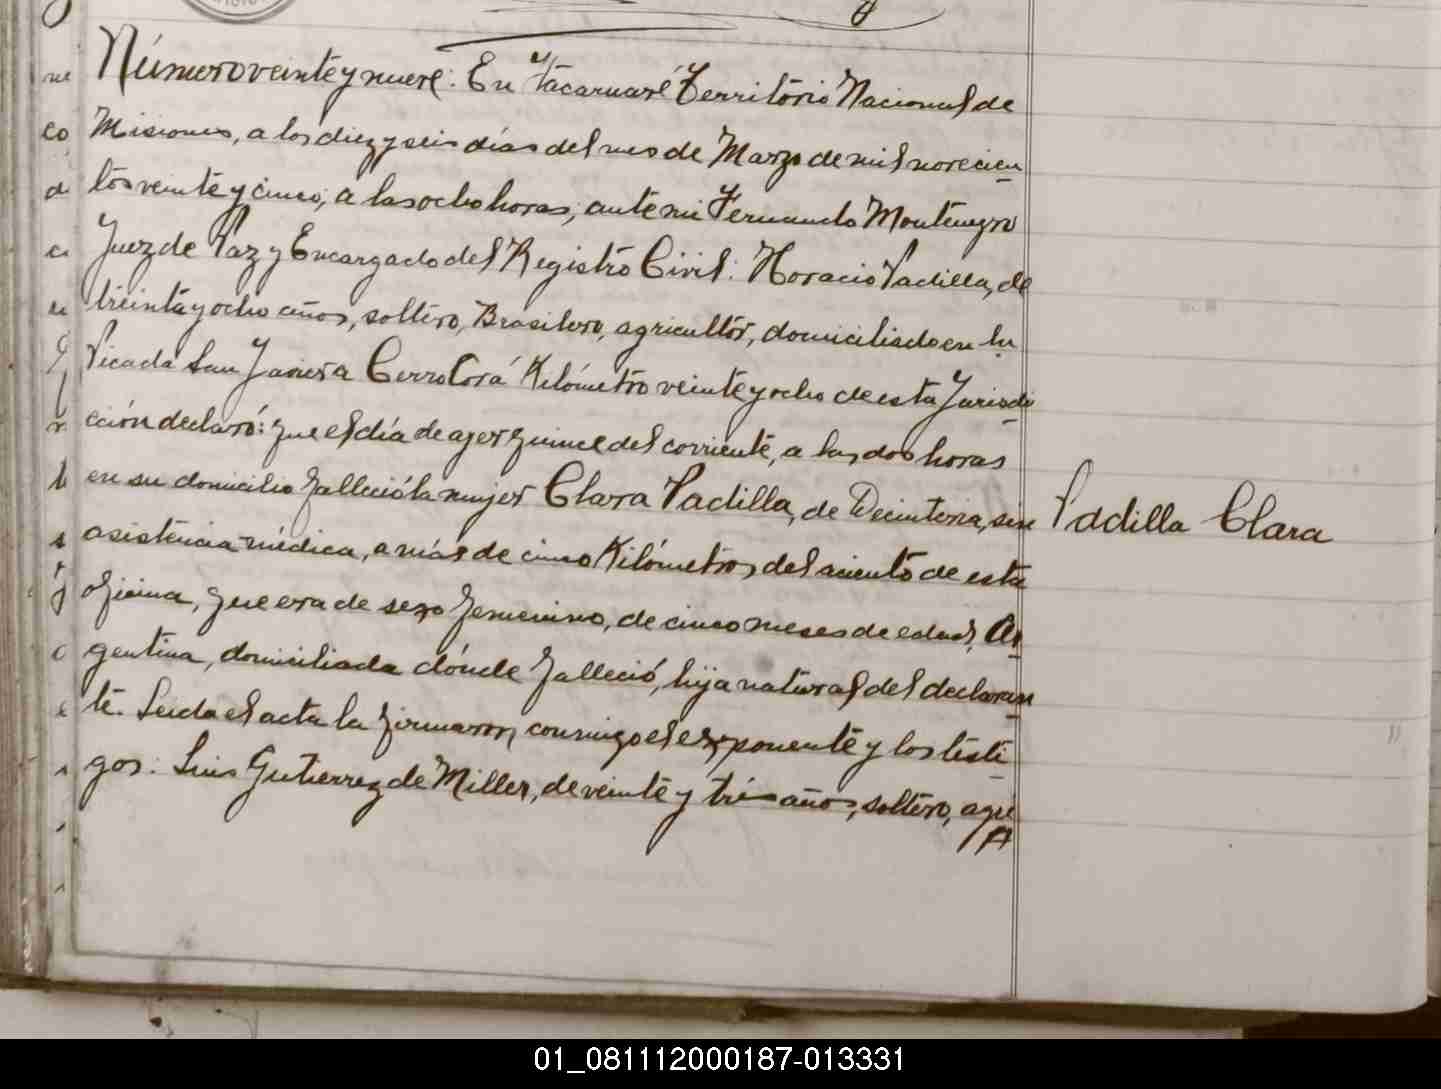 Número veinte y nueve: En Itacaruaré Territorio Nacional de
Misiones, a los diez y seis días del mes de Marzo de mil novecien
tos veinte y cinco, a las ocho horas, ante mi Fernando Montenegro
Juez de Paz y Encargado del Registro Civil: Horacio Padilla, de
treinta y ocho años, soltero, Brasilero, agricultor, domiciliado en la
Picada San Javier a Cerro Corá Kilómetro veinte y ocho de esta Jurisdi
cción declaró: que el día de ayer quince del corriente, a las dos horas
en su domicilio falleció la mujer Clara Padilla, de Decinteria, sin
Padilla Clara
asistencia médica, a más de cinco Kilómetros del asiento de esta
oficina, que era de sexo femenino, de cinco meses de edad, Ar
gentina, domiciliada dónde falleció, hija natural del declaran
te. Leida el acta la firmaron conmigo el exponente y los testi
gos: Luis Gutierrez de Miller, de veinte y tres años, soltero, agri
01_081112000187-013331